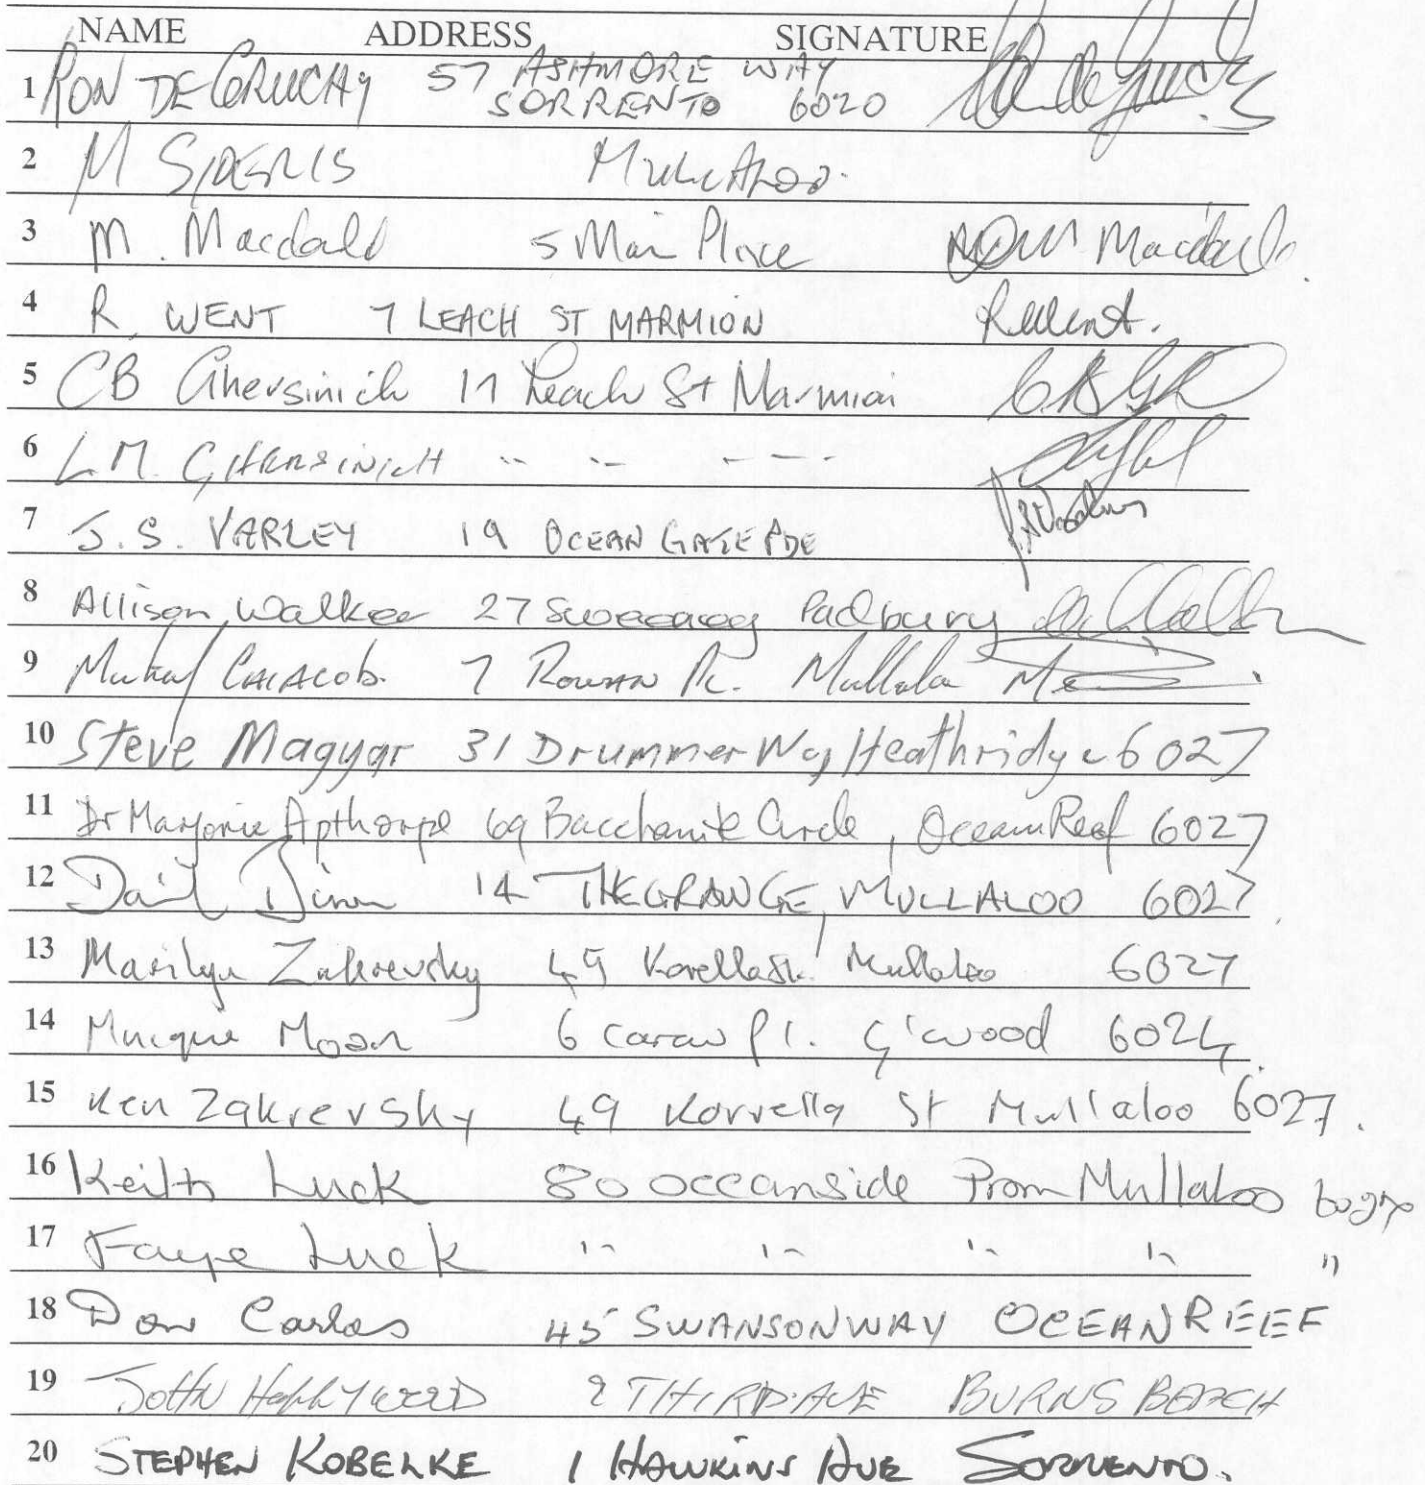 NAME ADDRESS SIGNATURE
1 RON DE GRUCHY 57 ASHMORE WAY
SORRENTO 6020
2 M SIDERIS Mullaloo.
3 M. Macdald 5 Mair Place
4 R. WENT 7 LEACH ST MARMION RWent.
5 CB Ghersinich 17 Leach St Marmion
6 L.M. GHERSINICH " " " "
7 J.S. VARLEY 19 OCEAN GATE PDE
8 Allison Walker 27 Padbury
9 CAIACOB. 7 ROWAN PL. Mullaloo
10 Steve Magyar 31 Drummer Way Heathridge 6027
11 Dr Marjorie Apthorpe 69 Bacchante Circle, Ocean Reef 6027
12 14 THE GRANGE, MULLALOO 6027
13 Marilyn Zakrevsky 49 Korella St. Mullaloo 6027
14 6 Caraw Pl. G'wood 6024
15 Ken Zakrevsky 49 Korrella St Mullaloo 6027.
16 Keith Luck 80 Oceanside Prom Mullaloo 6027
17 Faye Luck " " " " "
18 Don Carlos 45 SWANSON WAY OCEAN REEF
19 JOHN HOLLYWOOD 2 THIRD AVE BURNS BEACH
20 STEPHEN KOBELKE 1 HAWKINS AVE SORRENTO.